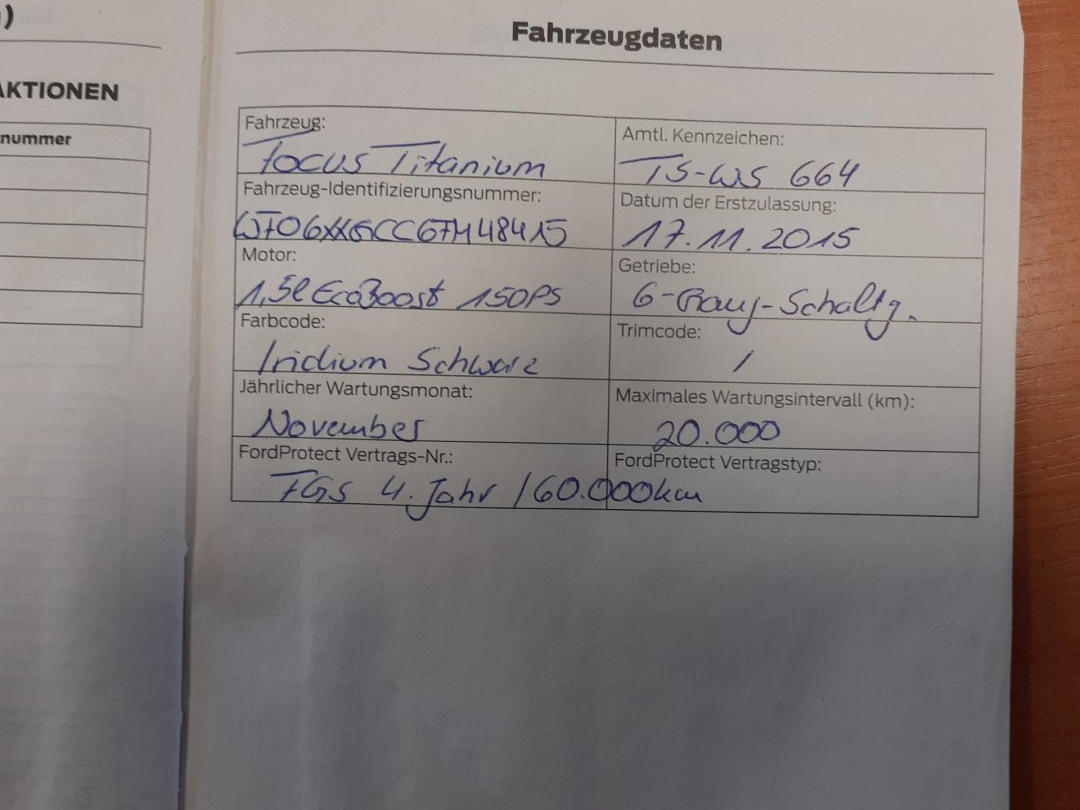 )
AKTIONEN
nummer
Fahrzeugdaten
Fahrzeug:
Focus Titanium
Amtl. Kennzeichen:
TS-WS 664
Fahrzeug-Identifizierungsnummer:
WF06XXGCC6FM48415
Datum der Erstzulassung:
17.11.2015
Motor:
1,5l EcoBoost 150PS
Getriebe:
6-Gang-Schaltg.
Farbcode:
Iridium Schwarz
Trimcode:
/
Jährlicher Wartungsmonat:
November
Maximales Wartungsintervall (km):
20.000
FordProtect Vertrags-Nr.:
FordProtect Vertragstyp:
FGS 4. Jahr /60.000km